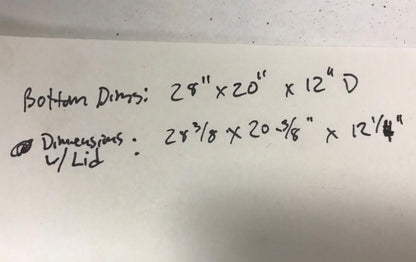 Bottom Dims: 28" x 20" x 12" D
Dimensions : 28 3/8 x 20 3/8" x 12 1/4"
w/ Lid